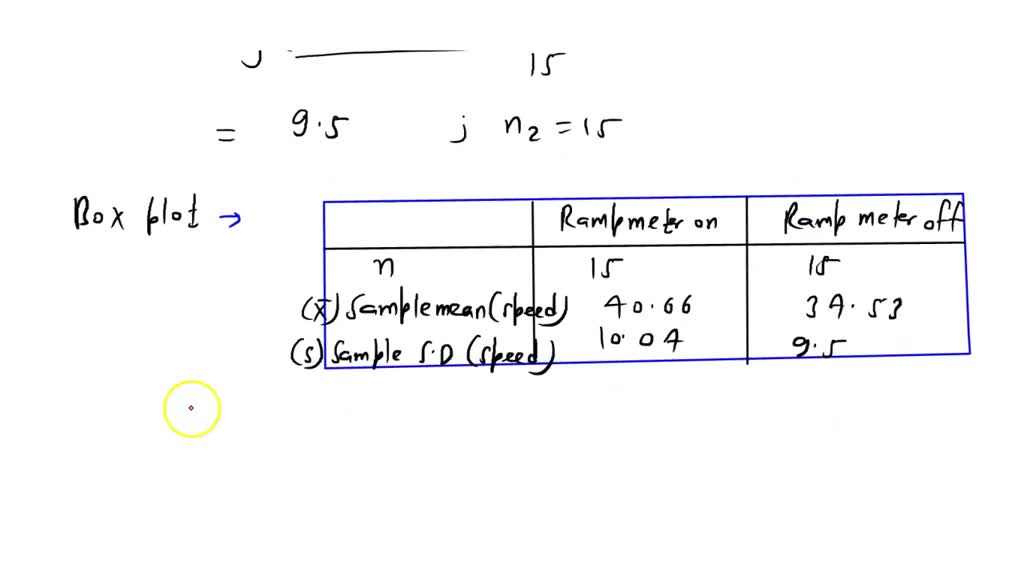 15
= 9.5 ; n2 = 15
Box plot →
Rampmeter on Ramp meter off
n 15 15
(x̄) Sample mean (speed) 40.66 34.53
(S) Sample S.D (speed) 10.04 9.5